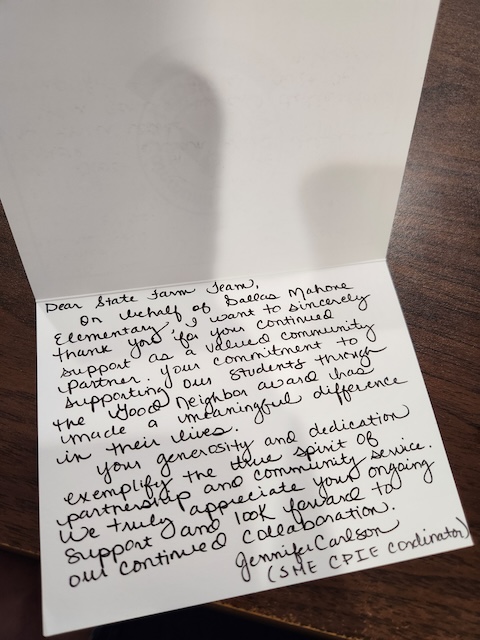 Dear State Farm Team,
On behalf of Dallas Mahone
Elementary, I want to sincerely
thank you for your continued
support as a valued community
partner. Your commitment to
supporting our students through
the Good Neighbor award has
made a meaningful difference
in their lives.
Your generosity and dedication
exemplify the true spirit of
partnership and community service.
We truly appreciate your ongoing
support and look forward to
our continued collaboration.
Jennifer Carlson
(SME CPIE Coordinator)